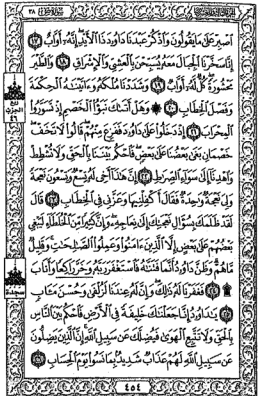 ٣٨
ٱصْبِرْ عَلَىٰ مَا يَقُولُونَ وَٱذْكُرْ عَبْدَنَا دَاوُۥدَ ذَا ٱلْأَيْدِ إِنَّهُۥٓ أَوَّابٌ ١٧
إِنَّا سَخَّرْنَا ٱلْجِبَالَ مَعَهُۥ يُسَبِّحْنَ بِٱلْعَشِىِّ وَٱلْإِشْرَاقِ ١٨ وَٱلطَّيْرَ
مَحْشُورَةً كُلٌّ لَّهُۥٓ أَوَّابٌ ١٩ وَشَدَدْنَا مُلْكَهُۥ وَءَاتَيْنَٰهُ ٱلْحِكْمَةَ
وَفَصْلَ ٱلْخِطَابِ ٢٠ وَهَلْ أَتَىٰكَ نَبَؤُا۟ ٱلْخَصْمِ إِذْ تَسَوَّرُوا۟
ٱلْمِحْرَابَ ٢١ إِذْ دَخَلُوا۟ عَلَىٰ دَاوُۥدَ فَفَزِعَ مِنْهُمْ قَالُوا۟ لَا تَخَفْ
خَصْمَانِ بَغَىٰ بَعْضُنَا عَلَىٰ بَعْضٍ فَٱحْكُم بَيْنَنَا بِٱلْحَقِّ وَلَا تُشْطِطْ
وَٱهْدِنَآ إِلَىٰ سَوَآءِ ٱلصِّرَٰطِ ٢٢ إِنَّ هَٰذَآ أَخِى لَهُۥ تِسْعٌ وَتِسْعُونَ نَعْجَةً
وَلِىَ نَعْجَةٌ وَٰحِدَةٌ فَقَالَ أَكْفِلْنِيهَا وَعَزَّنِى فِى ٱلْخِطَابِ ٢٣ قَالَ
لَقَدْ ظَلَمَكَ بِسُؤَالِ نَعْجَتِكَ إِلَىٰ نِعَاجِهِۦ وَإِنَّ كَثِيرًا مِّنَ ٱلْخُلَطَآءِ لَيَبْغِى
بَعْضُهُمْ عَلَىٰ بَعْضٍ إِلَّا ٱلَّذِينَ ءَامَنُوا۟ وَعَمِلُوا۟ ٱلصَّٰلِحَٰتِ وَقَلِيلٌ
مَّا هُمْ وَظَنَّ دَاوُۥدُ أَنَّمَا فَتَنَّٰهُ فَٱسْتَغْفَرَ رَبَّهُۥ وَخَرَّ رَاكِعًا وَأَنَابَ
۩ ٢٤ فَغَفَرْنَا لَهُۥ ذَٰلِكَ وَإِنَّ لَهُۥ عِندَنَا لَزُلْفَىٰ وَحُسْنَ مَـَٔابٍ
٢٥ يَٰدَاوُۥدُ إِنَّا جَعَلْنَٰكَ خَلِيفَةً فِى ٱلْأَرْضِ فَٱحْكُم بَيْنَ ٱلنَّاسِ
بِٱلْحَقِّ وَلَا تَتَّبِعِ ٱلْهَوَىٰ فَيُضِلَّكَ عَن سَبِيلِ ٱللَّهِ إِنَّ ٱلَّذِينَ يَضِلُّونَ
عَن سَبِيلِ ٱللَّهِ لَهُمْ عَذَابٌ شَدِيدٌۢ بِمَا نَسُوا۟ يَوْمَ ٱلْحِسَابِ ٢٦
ربع
الحزب
٤٦
سجدة
٤٥٤